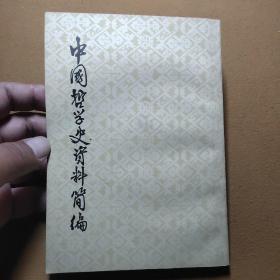 中國哲学史資料簡編